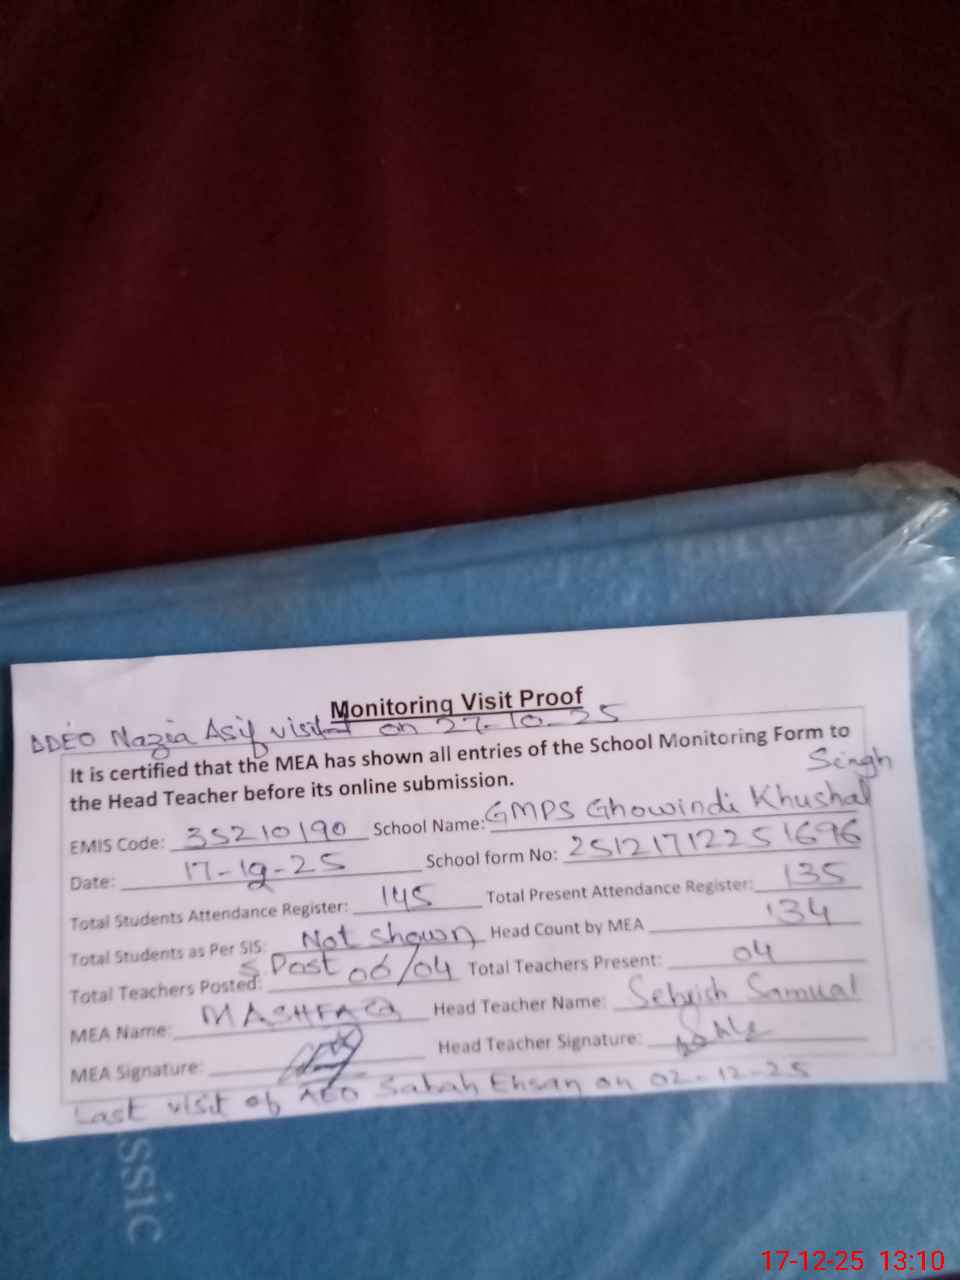 Monitoring Visit Proof
DDEO Nazia Asif visited on 27-10-25
It is certified that the MEA has shown all entries of the School Monitoring Form to
the Head Teacher before its online submission.
Singh
EMIS Code: 35210190 School Name: GMPS Ghowindi Khushal
Date: 17-12-25 School form No: 25121712251696
Total Students Attendance Register: 145 Total Present Attendance Register: 135
Total Students as Per SIS: Not shown Head Count by MEA 134
Total Teachers Posted: Post 06/04 Total Teachers Present: 04
MEA Name: MASHFAQ Head Teacher Name: Sehrish Samual
MEA Signature: Head Teacher Signature:
Last visit of AEO Sabah Ehsan on 02-12-25
ssic
17-12-25 13:10